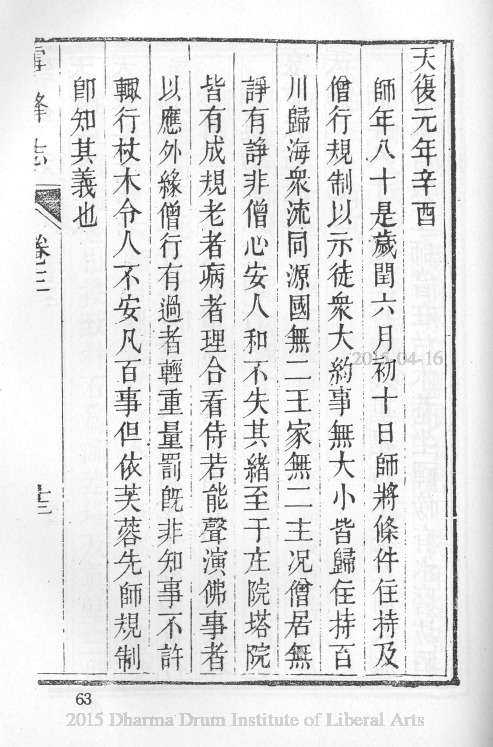 天復元年辛酉
師年八十是歲閏六月初十日師將條件住持及
僧行規制以示徒衆大約事無大小皆歸住持百
川歸海衆流同源國無二王家無二主况僧居無
諍有諍非僧心安人和不失其緒至于庄院塔院
皆有成規老者病者理合看侍若能聲演佛事者
以應外緣僧行有過者輕重量罰旣非知事不許
輙行杖木令人不安凡百事但依芙蓉先師規制
卽知其義也
雪峰志
卷三
十三
63
2015-04-16
2015 Dharma Drum Institute of Liberal Arts